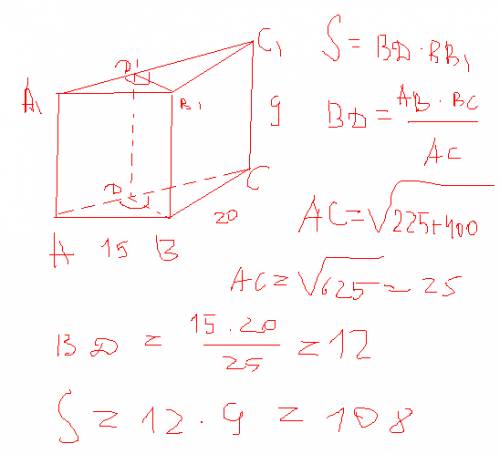 C₁
D'
A₁
B₁
9
D
C
20
A 15 B
S = BD · BB₁
BD = AB · BC / AC
AC = √225+400
AC = √625 = 25
BD = 15 · 20 / 25 = 12
S = 12 · 9 = 108